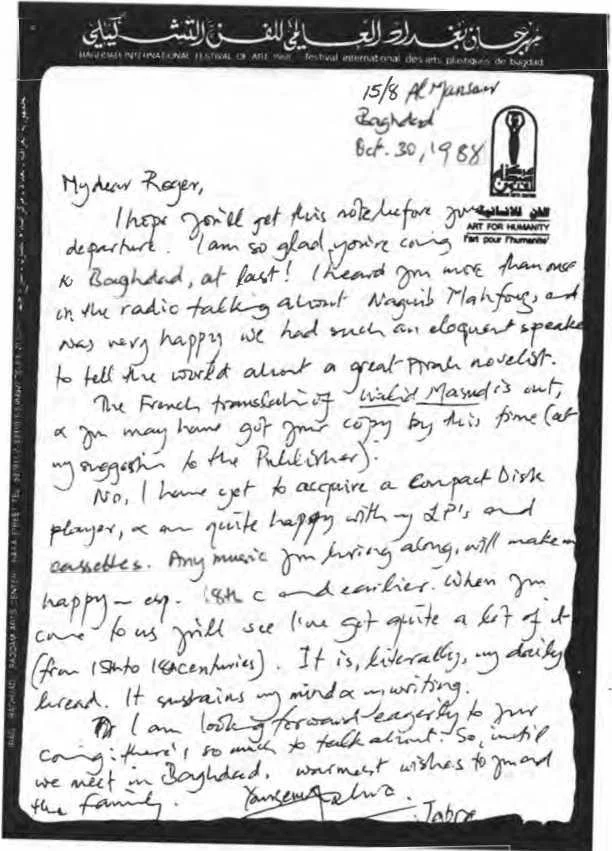 مهرجان بغداد العالمي للفن التشكيلي
BAGHDAD INTERNATIONAL FESTIVAL OF ART 1988 festival international des arts plastiques de bagdad
15/8 Al Mansour
Baghdad
Oct. 30, 1988
الفن للانسانية
ART FOR HUMANITY
l'art pour l'humanite'
My dear Roger,
I hope you'll get this note before your
departure. I am so glad you're coming
to Baghdad, at last! I heard you more than once
on the radio talking about Naguib Mahfouz, and
was very happy we had such an eloquent speaker
to tell the world about a great Arab novelist.
The French translation of Walid Masud is out,
& you may have got your copy by this time (at
my suggestion to the Publisher).
No, I have yet to acquire a Compact Disk
player, & am quite happy with my LP's and
cassettes. Any music you bring along, will make me
happy — esp. 18th c and earlier. When you
come to us you'll see I've got quite a lot of it
(from 15th to 18th centuries). It is, literally, my daily
bread. It sustains my mind & my writing.
I am looking forward eagerly to your
coming: there's so much to talk about. So, until
we meet in Baghdad, warmest wishes to you and
the family.
Yours ever
Jabra